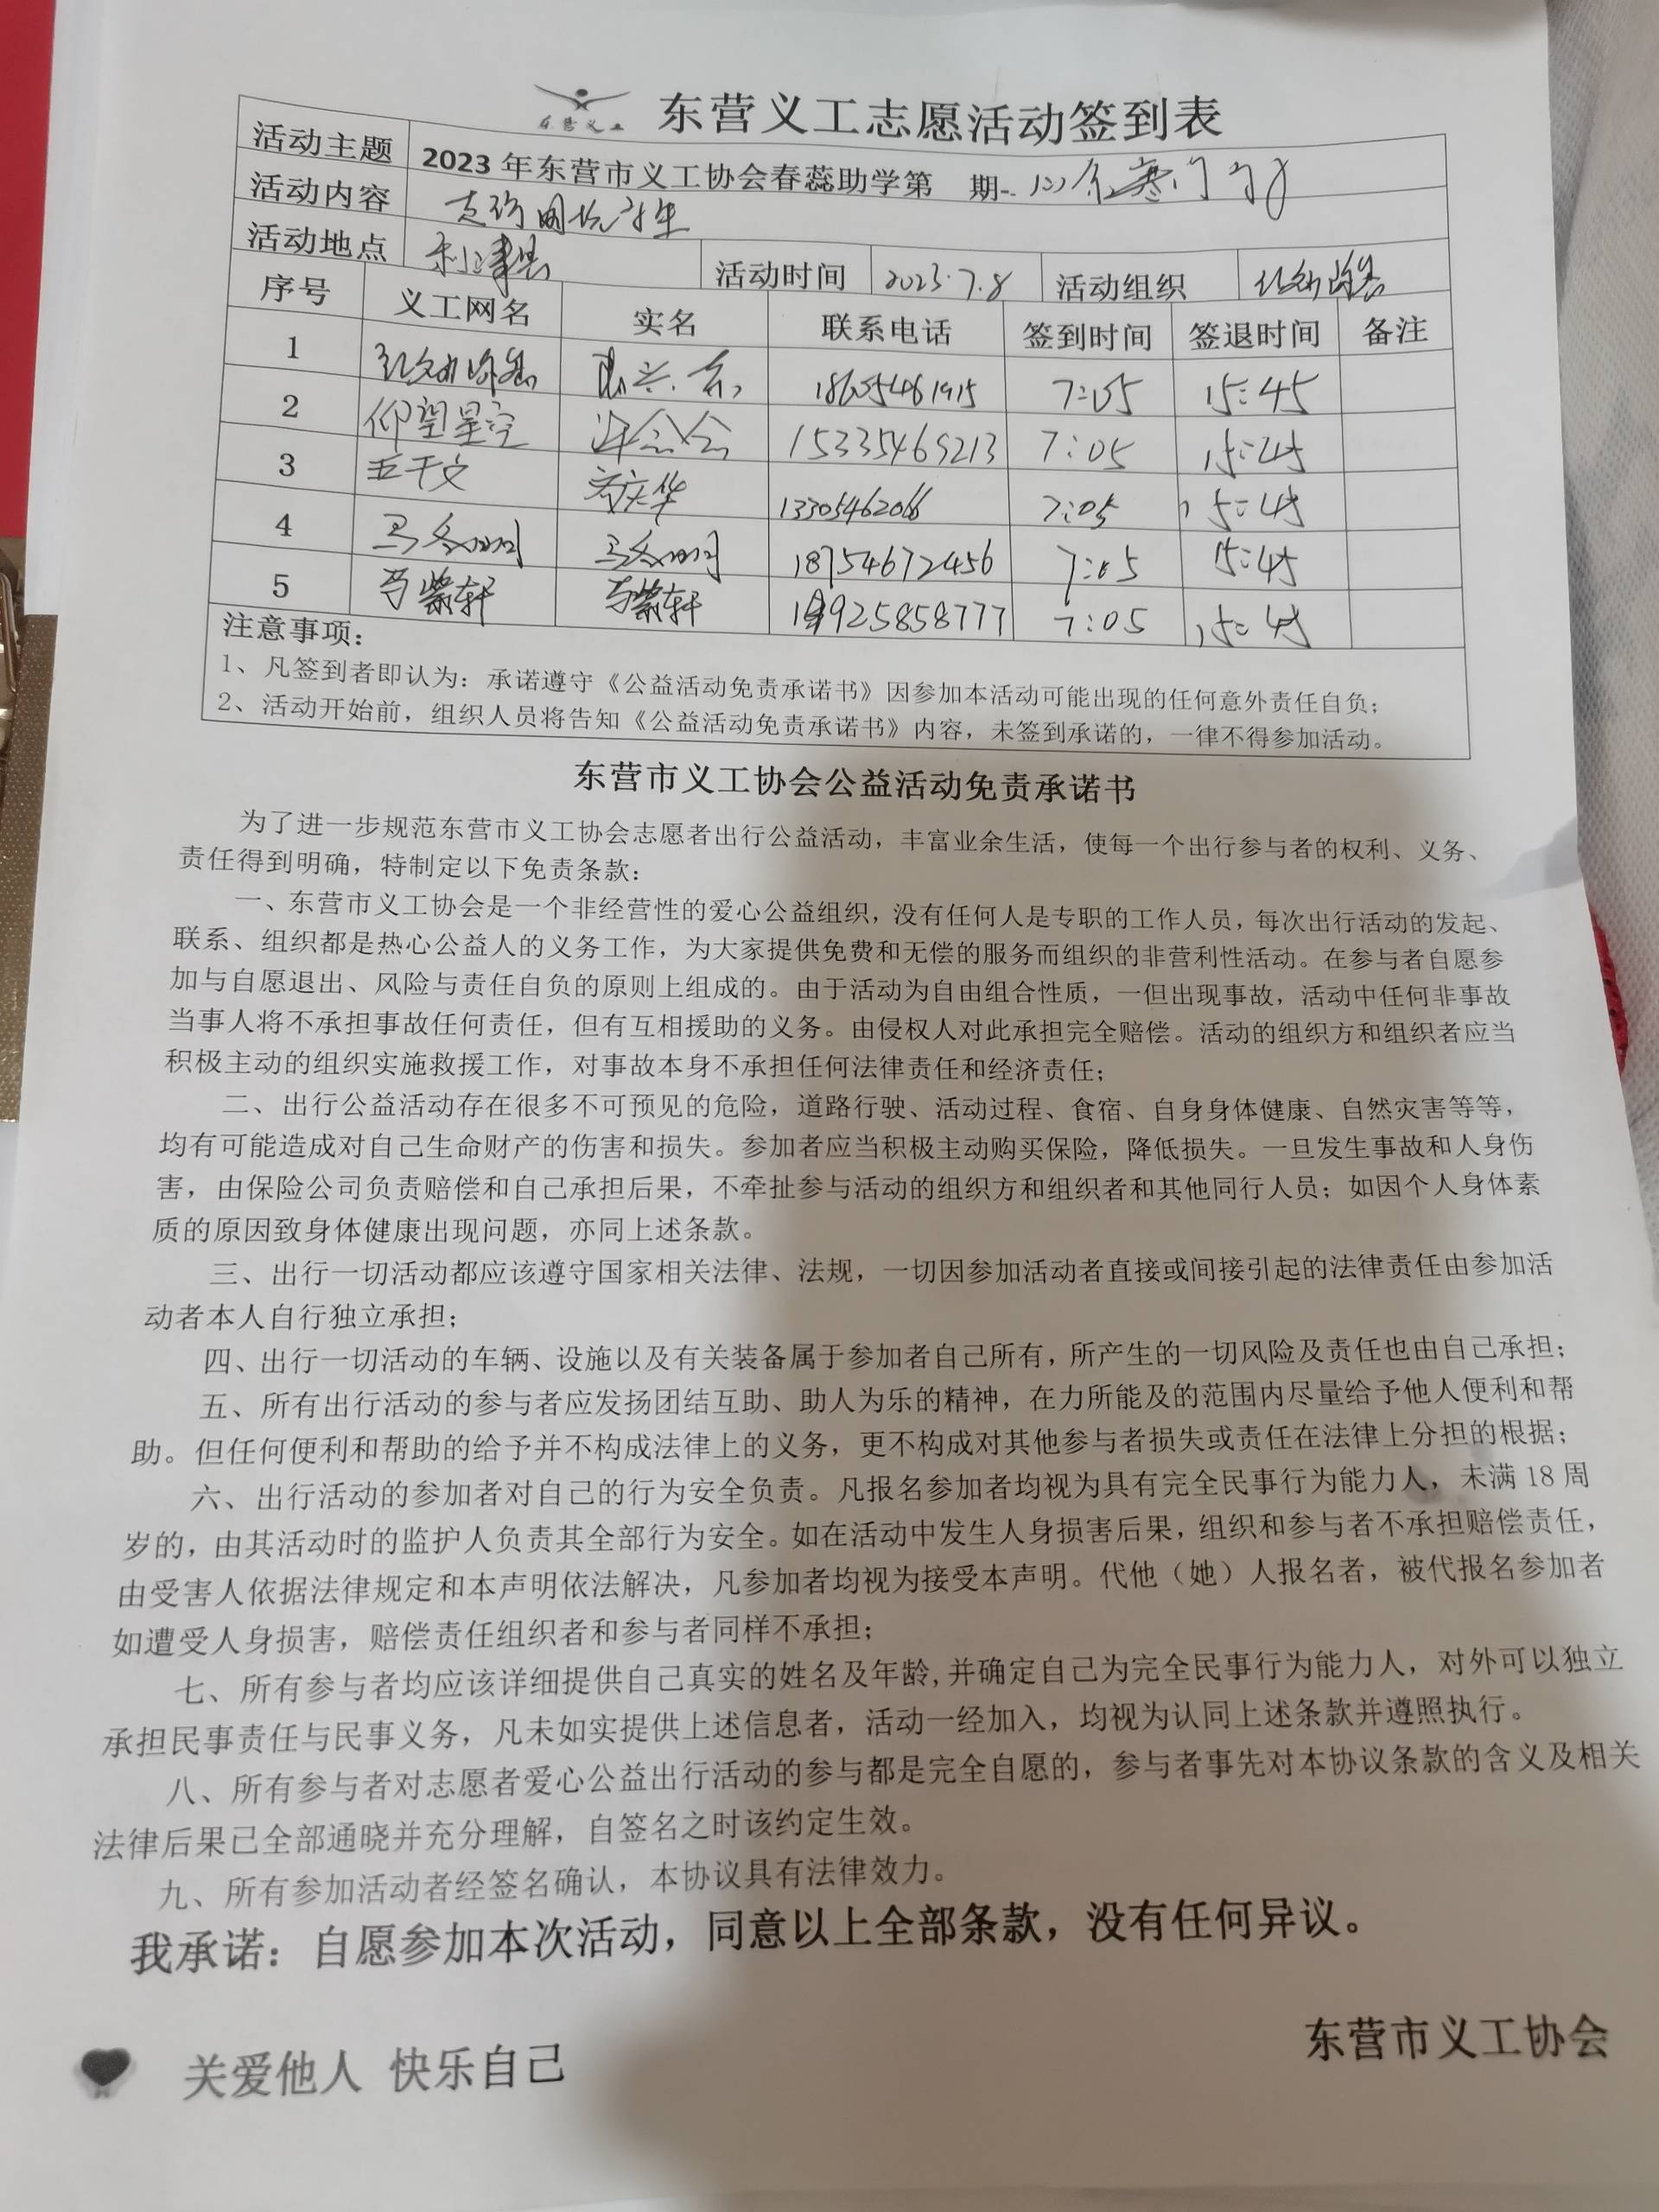 东营义工
东营义工志愿活动签到表
活动主题 2023年东营市义工协会春蕊助学第 期--
活动内容
活动地点 利津县 活动时间 2023.7.8 活动组织
序号 义工网名 实名 联系电话 签到时间 签退时间 备注
1 18605461915 7:05 15:45
2 仰望星空 15335469213 7:05 15:45
3 13305462066 7:05 15:45
4 18754672456 7:05 15:45
5 925858777 7:05 15:45
注意事项：
1、凡签到者即认为：承诺遵守《公益活动免责承诺书》因参加本活动可能出现的任何意外责任自负；
2、活动开始前，组织人员将告知《公益活动免责承诺书》内容，未签到承诺的，一律不得参加活动。
东营市义工协会公益活动免责承诺书
为了进一步规范东营市义工协会志愿者出行公益活动，丰富业余生活，使每一个出行参与者的权利、义务、
责任得到明确，特制定以下免责条款：
一、东营市义工协会是一个非经营性的爱心公益组织，没有任何人是专职的工作人员，每次出行活动的发起、
联系、组织都是热心公益人的义务工作，为大家提供免费和无偿的服务而组织的非营利性活动。在参与者自愿参
加与自愿退出、风险与责任自负的原则上组成的。由于活动为自由组合性质，一但出现事故，活动中任何非事故
当事人将不承担事故任何责任，但有互相援助的义务。由侵权人对此承担完全赔偿。活动的组织方和组织者应当
积极主动的组织实施救援工作，对事故本身不承担任何法律责任和经济责任；
二、出行公益活动存在很多不可预见的危险，道路行驶、活动过程、食宿、自身身体健康、自然灾害等等，
均有可能造成对自己生命财产的伤害和损失。参加者应当积极主动购买保险，降低损失。一旦发生事故和人身伤
害，由保险公司负责赔偿和自己承担后果，不牵扯参与活动的组织方和组织者和其他同行人员；如因个人身体素
质的原因致身体健康出现问题，亦同上述条款。
三、出行一切活动都应该遵守国家相关法律、法规，一切因参加活动者直接或间接引起的法律责任由参加活
动者本人自行独立承担；
四、出行一切活动的车辆、设施以及有关装备属于参加者自己所有，所产生的一切风险及责任也由自己承担；
五、所有出行活动的参与者应发扬团结互助、助人为乐的精神，在力所能及的范围内尽量给予他人便利和帮
助。但任何便利和帮助的给予并不构成法律上的义务，更不构成对其他参与者损失或责任在法律上分担的根据；
六、出行活动的参加者对自己的行为安全负责。凡报名参加者均视为具有完全民事行为能力人，未满18周
岁的，由其活动时的监护人负责其全部行为安全。如在活动中发生人身损害后果，组织和参与者不承担赔偿责任，
由受害人依据法律规定和本声明依法解决，凡参加者均视为接受本声明。代他（她）人报名者，被代报名参加者
如遭受人身损害，赔偿责任组织者和参与者同样不承担；
七、所有参与者均应该详细提供自己真实的姓名及年龄,并确定自己为完全民事行为能力人，对外可以独立
承担民事责任与民事义务，凡未如实提供上述信息者，活动一经加入，均视为认同上述条款并遵照执行。
八、所有参与者对志愿者爱心公益出行活动的参与都是完全自愿的，参与者事先对本协议条款的含义及相关
法律后果已全部通晓并充分理解，自签名之时该约定生效。
九、所有参加活动者经签名确认，本协议具有法律效力。
我承诺：自愿参加本次活动，同意以上全部条款，没有任何异议。
东营市义工协会
关爱他人 快乐自己